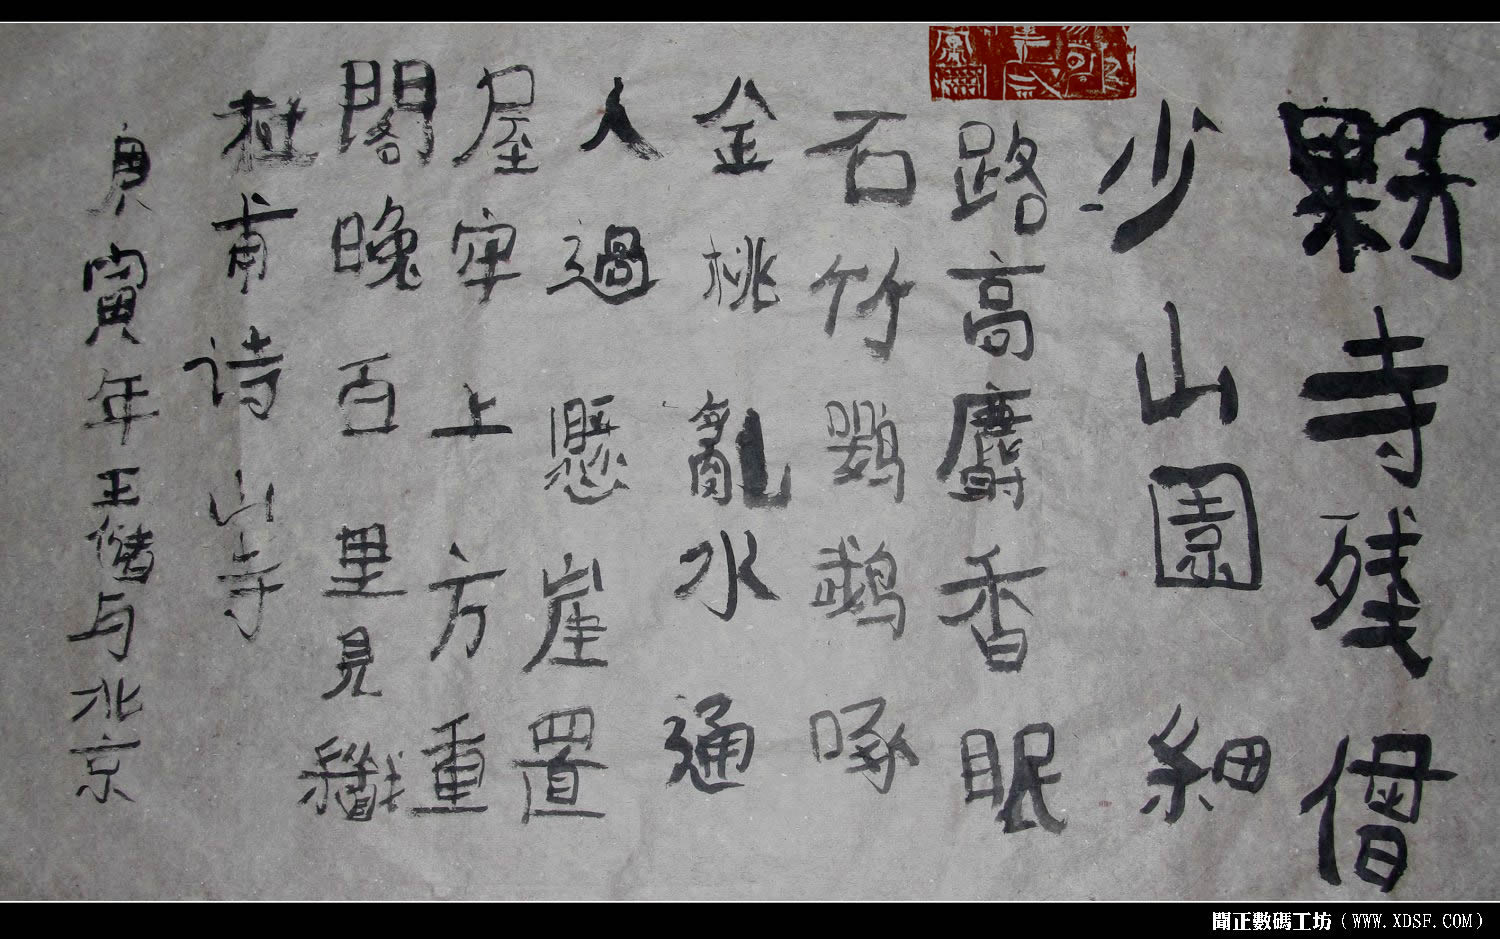 野寺残僧
少山園細
路高麝香眠
石竹鸚鵡啄
金桃亂水通
人過懸崖置
屋牢上方重
閣晚百里見纖
杜甫诗山寺
庚寅年王与北京
聞正數碼工坊（WWW.XDSF.COM）